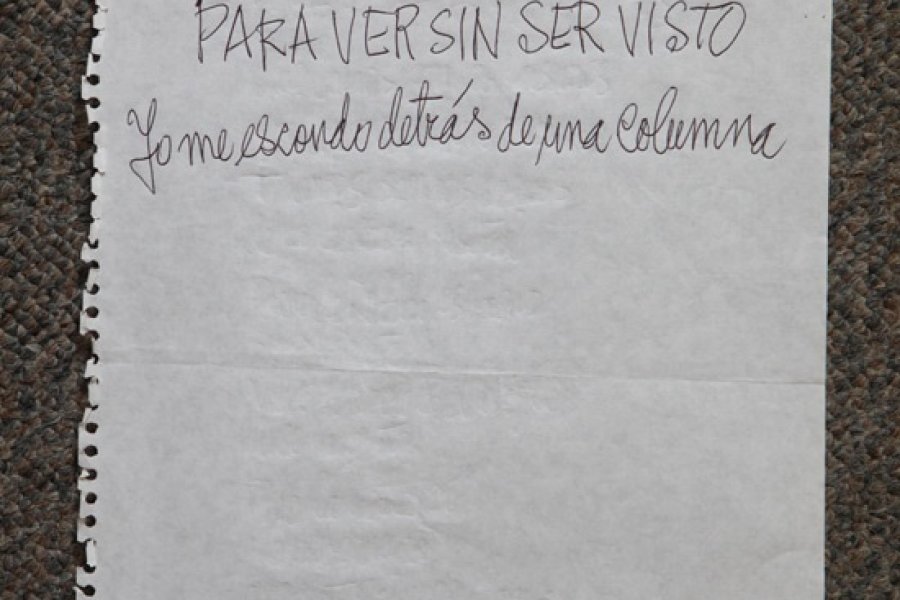 PARA VER SIN SER VISTO
Yo me escondo detrás de una columna